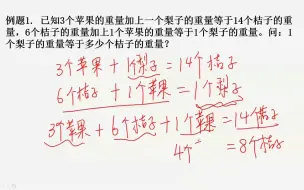 例题1. 已知3个苹果的重量加上一个梨子的重量等于14个桔子的重
量，6个桔子的重量加上1个苹果的重量等于1个梨子的重量。问：1
个梨子的重量等于多少个桔子的重量？
3个苹果 + 1个梨子 = 14个桔子
6个桔子 + 1个苹果 = 1个梨子
3个苹果 + 6个桔子 + 1个苹果 = 14个桔子
4个 = 8个桔子